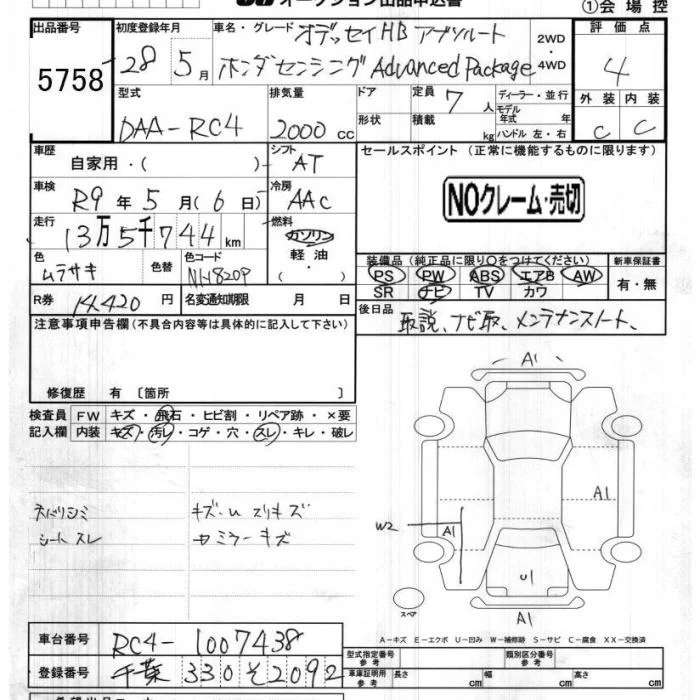 オークション出品申込書
①会場控
出品番号 初度登録年月 車名・グレード オデッセイHB アブソルート 2WD・4WD 評価点
5758 28 5月 ホンダセンシング Advanced Package 4
型式 排気量 ドア 定員 7人 ディーラー・並行 外装 内装
DAA-RC4 2000cc 形状 積載 kg モデル年式 年 ハンドル 左・右 C C
車歴 自家用・( ) シフト AT セールスポイント (正常に機能するものに限ります)
車検 R9年5月(6日) 冷房 AAC NOクレーム・売切
走行 13万5千744km 燃料 ガソリン・軽油・
装備品(純正品に限り○をつけてください) 新車保証書
色 ムラサキ 色替 色コード PS PW ABS エアB AW 有・無
SR ナビ TV カワ
R券 14420円 名変通知期限 月 日
後日品 取説、ナビ取、メンテナンスノート、
注意事項申告欄(不具合内容等は具体的に記入して下さい)
修復歴 有 〔箇所 〕
検査員記入欄 FW キズ・飛石・ヒビ割・リペア跡・×要
内装 キズ・汚レ・コゲ・穴・スレ・キレ・破レ
A1
A1
ネバリジミ キズ・U スリキズ
シートスレ ミラーキズ
W2 A1
U1
スペア
A1
A-キズ E-エクボ U-凹み W-補修跡 S-サビ C-腐食 XX-交換済
車台番号 RC4-1007438
型式指定番号 参考 類別区分番号 参考
登録番号 千葉 330 そ 2092
車庫証明用 参考 長さ cm 幅 cm 高さ cm